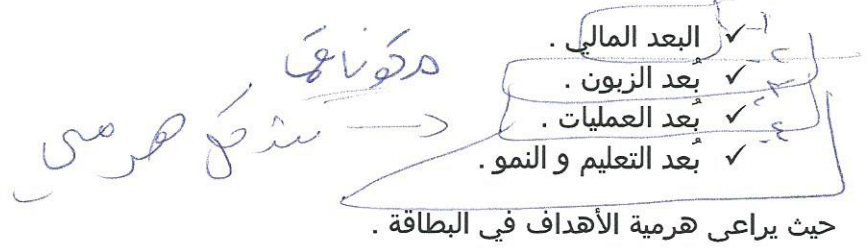 ١- ✓ البعد المالي .
٢- ✓ بُعد الزبون .
٣- ✓ بُعد العمليات .
٤- ✓ بُعد التعليم و النمو .
مكوناتها
شكل هرمي
حيث يراعى هرمية الأهداف في البطاقة .